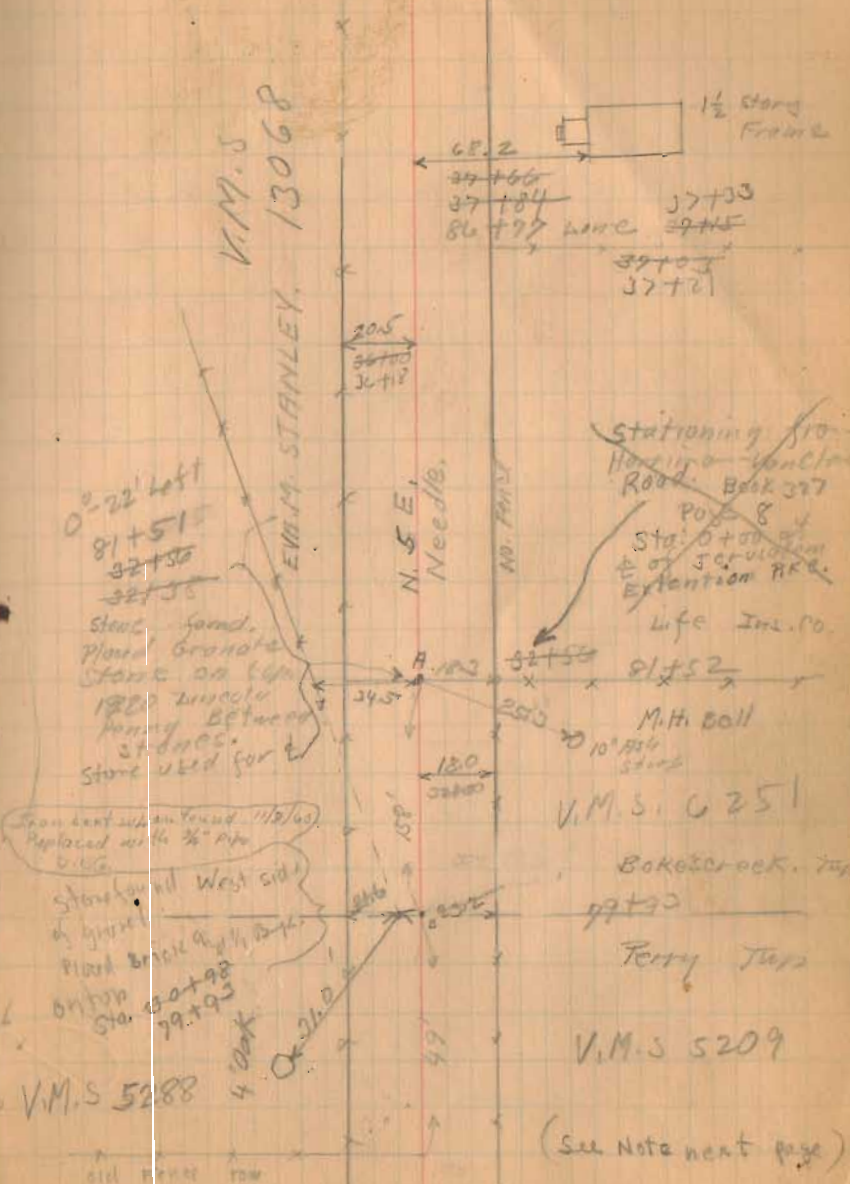 1½ Story
Frame
68.2
37+66
37+84
86+77 Lane
37+33
37+15
37+03
37+21
V.M.S
13068
EVA.M. STANLEY.
20.5
36+00
36+18
N. 5 E.
Needle.
No. Fence
Stationing
Road. Book 327
Page 8
Sta. 0+00
of Jerusalem
Extention
Life Ins. Co.
0°-22' Left
81+51
32+56
32+38
Stone found.
Placed Granate
Stone on top
Lincoln
Penny Between
stones.
Stone used for ℄
A
18.3
32+56
81+52
34.5
25.3
10" Ash
M.H. Ball
18.0
158'
V.M.S. 6251
Iron bent when found 11/8/60
Replaced with ¾" Pipe
Bokescreek. Twp
Stone found West side
of gravel
Placed Brick
on top
Sta. 30+98
79+93
21.6
79+93
Perry Twp
31.0
4' Oak
49'
V.M.S 5209
V.M.S 5288
(See Note next page)
old Fence row